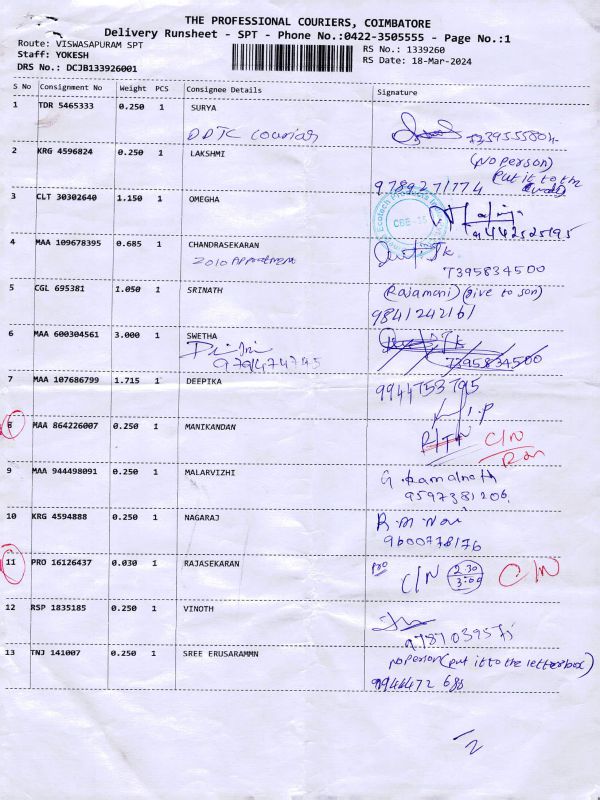 THE PROFESSIONAL COURIERS, COIMBATORE
Delivery Runsheet - SPT - Phone No.:0422-3505555 - Page No.:1
Route: VISWASAPURAM SPT RS No.: 1339260
Staff: YOKESH RS Date: 18-Mar-2024
DRS No.: DCJB133926001
S No Consignment No Weight PCS Consignee Details Signature
1 TDR 5465333 0.250 1 SURYA
DDTC courier
2 KRG 4596824 0.250 1 LAKSHMI (No person)
Put it to the
9789271774
3 CLT 30302640 1.150 1 OMEGHA
CBE-35
9442525195
4 MAA 109678395 0.685 1 CHANDRASEKARAN
7395834500
5 CGL 695381 1.050 1 SRINATH (Rajamani) (give to son)
9841242161
6 MAA 600304561 3.000 1 SWETHA
7395834500
7 MAA 107686799 1.715 1 DEEPIKA 9944753795
8 MAA 864226007 0.250 1 MANIKANDAN
C/N
9 MAA 944498091 0.250 1 MALARVIZHI G. Kamalnath
9597381206
10 KRG 4594888 0.250 1 NAGARAJ
9600778176
11 PRO 16126437 0.030 1 RAJASEKARAN PRO C/N 2.30 3:00 C/N
12 RSP 1835185 0.250 1 VINOTH
13 TNJ 141007 0.250 1 SREE ERUSARAMMN No person (put it to the letter box)
9944472688